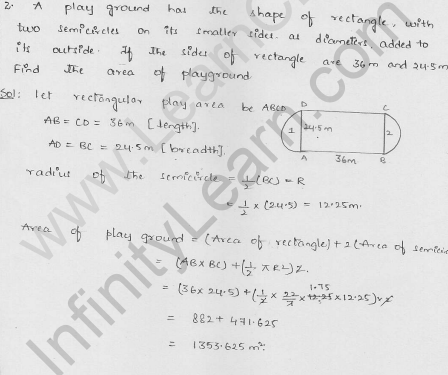 2. A play ground has the shape of rectangle, with
two semicircles on its smaller sides as diameters, added to
its outside. If the sides of rectangle are 36m and 24.5m
Find the area of playground.
Sol: Let rectangular play area be ABCD
AB = CD = 36m [length].
AD = BC = 24.5m [breadth].
D C
1 24.5m 2
A 36m B
radius of the semicircle = 1/2 (BC) = R
= 1/2 × (24.5) = 12.25m.
Area of play ground = (Area of rectangle) + 2 (Area of semicir
= (AB × BC) + (1/2 πR2) 2.
1.75
= (36 × 24.5) + (1/2 × 22/7 × 12.25 × 12.25) × 2
= 882 + 471.625
= 1353.625 m².
www.InfinityLearn.com